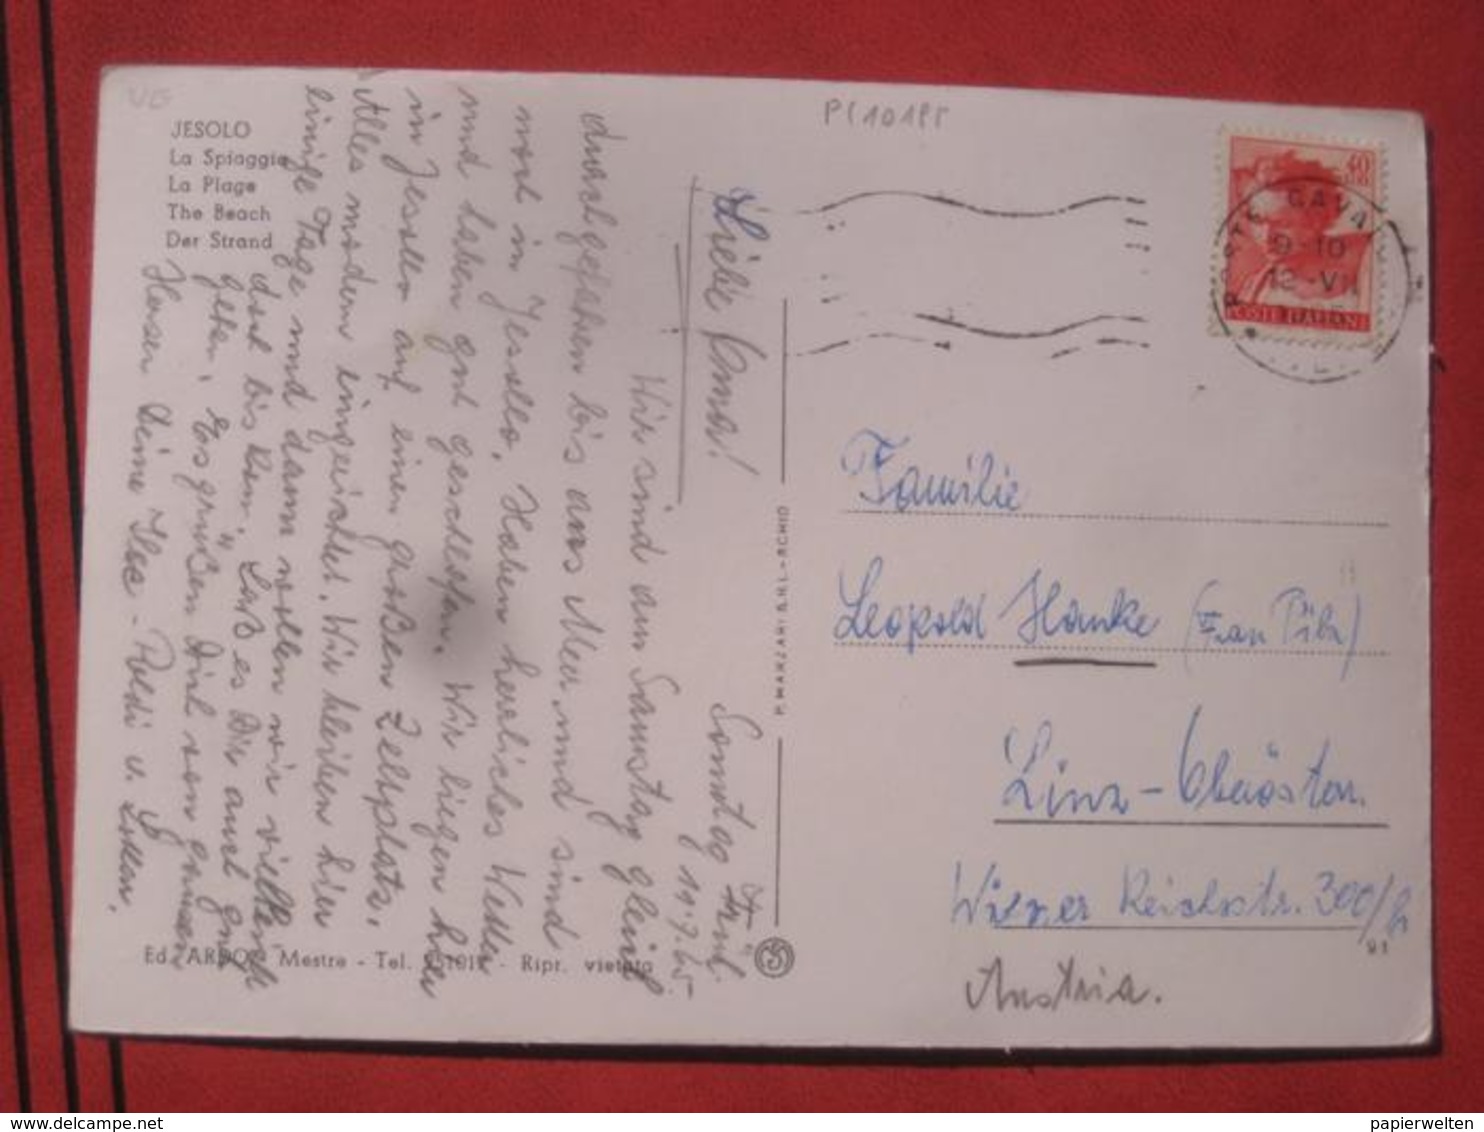 JESOLO
La Spiaggia
La Plage
The Beach
Der Strand
Sonntag Früh
11.7.65
Liebe Oma!
Wir sind am Samstag gleich
durchgefahren bis ans Meer und sind
in Jesolo. Haben herrliches Wetter
und haben gut geschlafen. Wir liegen hier
in Jesolo auf einen großen Zeltplatz.
Alles modern eingerichtet. Wir bleiben hier
einige Tage und dann wollen wir vielleicht
dort bis Rom. Laß es Dir auch gut
gehen. Es grüßen Dich vom ganzen
Herzen Deine Ilse - Poldi u.
P. MARZARI S.R.L. - SCHIO
Ed. ARDO - Mestre - Tel. - Ripr. vietata
40
POSTE ITALIANE
9-10
12-VII
Familie
Leopold Hanke (Frau)
Linz - Oberösterr.
Wiener Reichsstr. 300/
91
Austria.
papierwelten